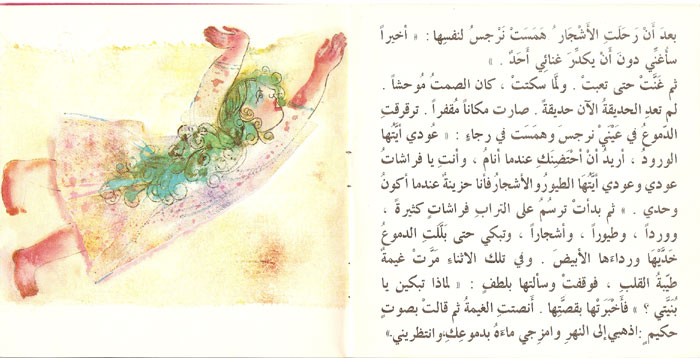 بعدَ أَنْ رَحَلَتِ الأَشْجَارُ هَمَسَتْ نَرْجسُ لنفسِها : « أخيراً
سأُغَنِّي دونَ أَنْ يكدِّرَ غنائِي أَحَدٌ . »
ثم غَنَّتْ حتى تعبتْ . ولَمَّا سكتتْ ، كان الصمتُ مُوحشاً .
لم تعدِ الحديقةُ الآن حديقةً . صارت مكاناً مُقفراً . ترقرقتِ
الدموعُ في عَيْنَيْ نرجسَ وهمَستْ في رجاءٍ : « عُودي أيَّتُها
الورودُ ، أريدُ أن أحْتَضِنَكِ عندما أنامُ ، وأنتِ يا فراشاتُ
عودي وعودي أيَّتُهَا الطيورُ والأشجارُ فأنا حزينةٌ عندما أكونُ
وحدي . » ثم بدأتْ ترسُمُ على الترابِ فراشاتٍ كثيرةً ،
وورداً ، وطيوراً ، وأشجاراً ، وتبكي حتى بَلَّلَتِ الدموعُ
خدَّيْهَا ورداءَها الأبيضَ . وفي تلك الاثناءِ مَرَّتْ غيمةٌ
طيّبةُ القلبِ ، فوقفتْ وسألتها بلطفٍ : « لماذا تبكين يا
بُنَيَّتي ؟ » فأَخْبَرَتْها بقصتِها . أنصتتِ الغيمةُ ثم قالتْ بصوتٍ
حكيمٍ : اذهبي إلى النهرِ وامزجي ماءَهُ بدموعِكِ، وانتظريني.»